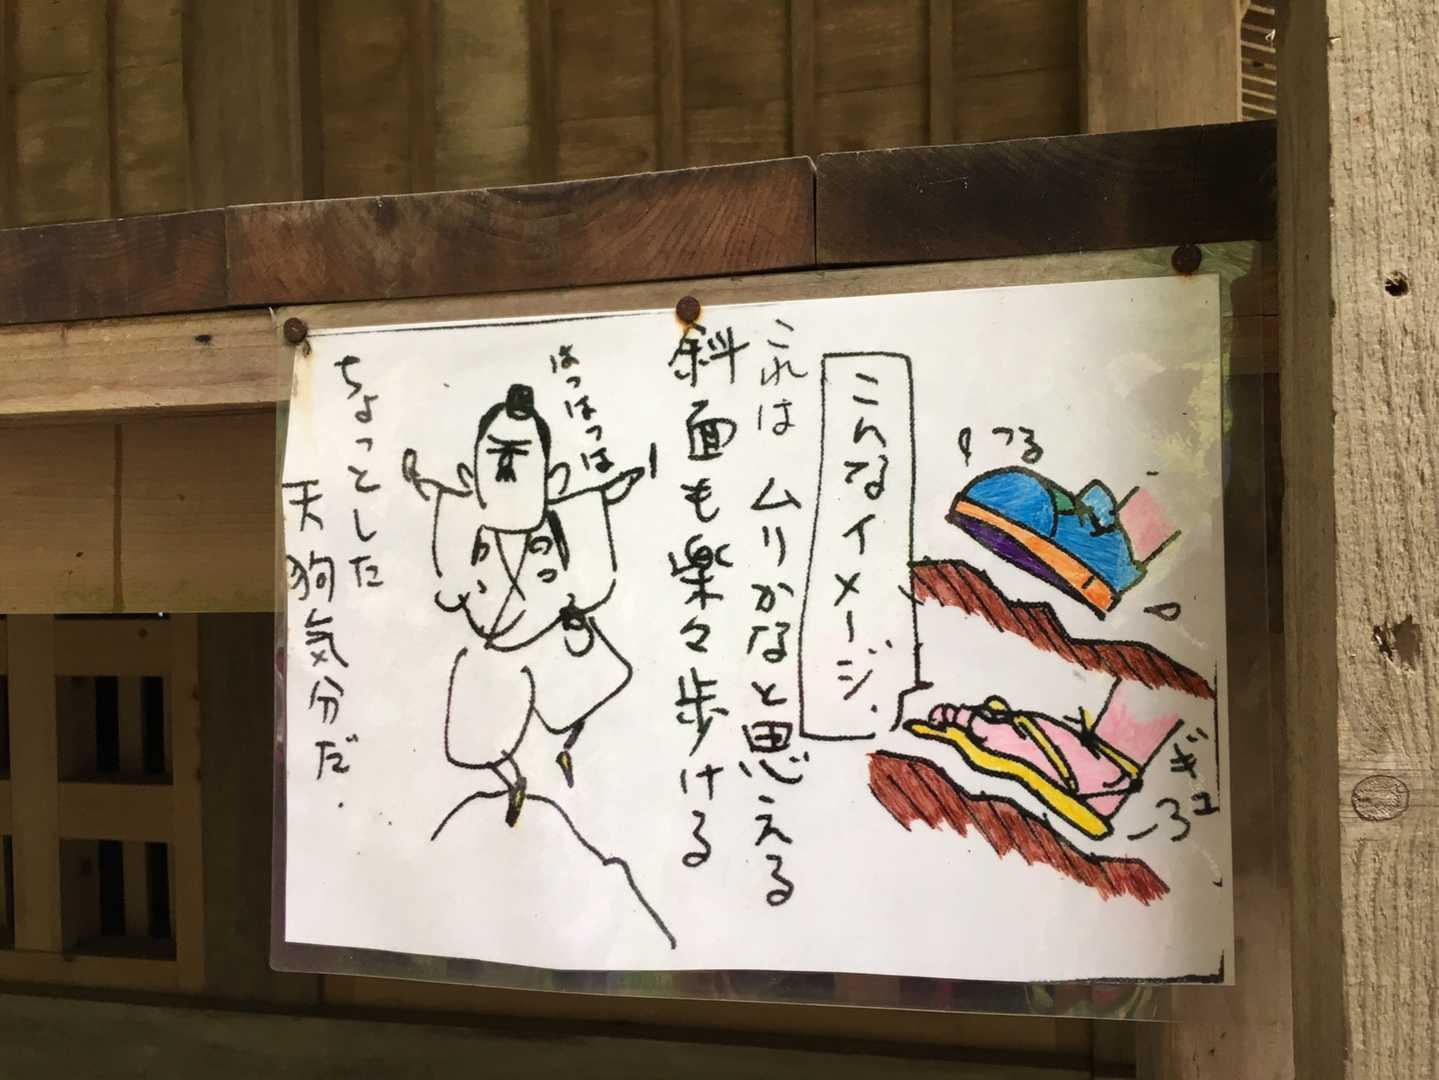 つる
ギュ
ーろ
こんなイメージ.
これはムリかなと思える
斜面も楽々歩ける
はっはっは
ちょっとした
天狗気分だ.